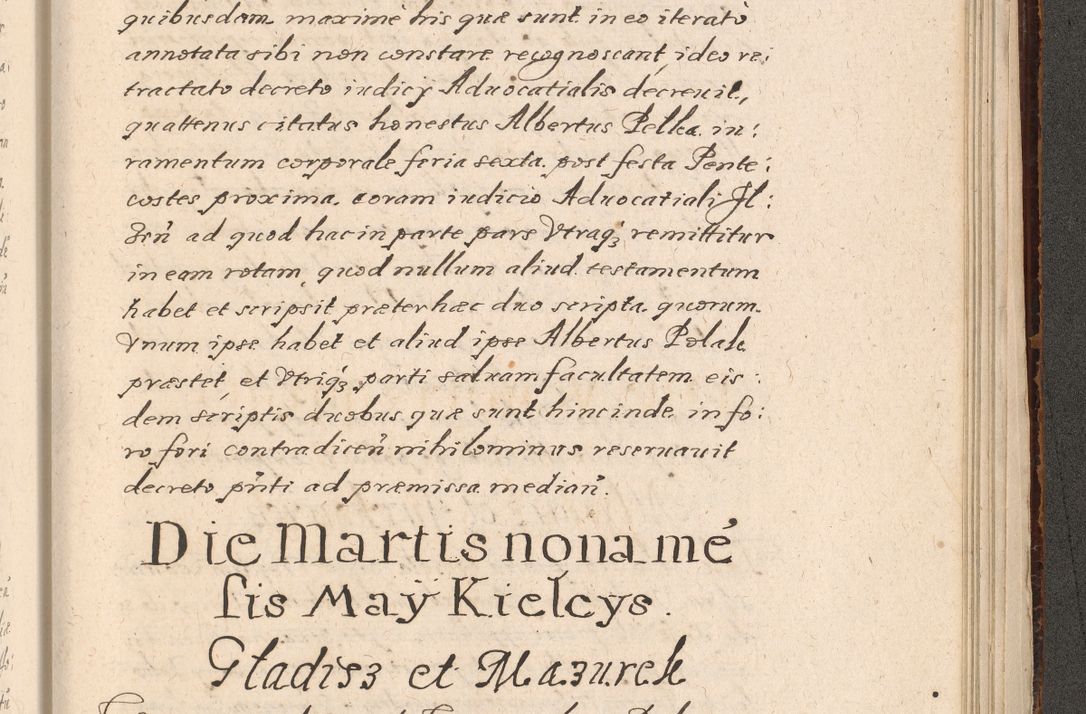 quibusdam maximè his quæ sunt in eo iteratò
annotata sibi non constare recognoscant, ideo re:
tractato decreto iudicÿ Aduocatialis decreuit,
quattenus citatus honestus Albertus Pelka in:
ramentum corporale feria sexta post festa Pente:
costes proxima coram iudicio Aduocatiali Il:
zeñ ad quod hac in parte pars Vtraqȝ remittitur
in eam rotam, quod nullum aliud testamentum
habet et scripsit præter hæc duo scripta quorum
Vnum ipse habet et aliud ipse Albertus Polak
præstet, et Vtriqȝ parti saluam facultatem eis:
dem scriptis duobus quæ sunt hincinde in fo:
ro fori contradiceñ nihilominus reseruauit
decreto pñti ad præmissa mediañ.
Die Martis nona mē
sis Maÿ Kielcys.
Gładisz et Mazurek